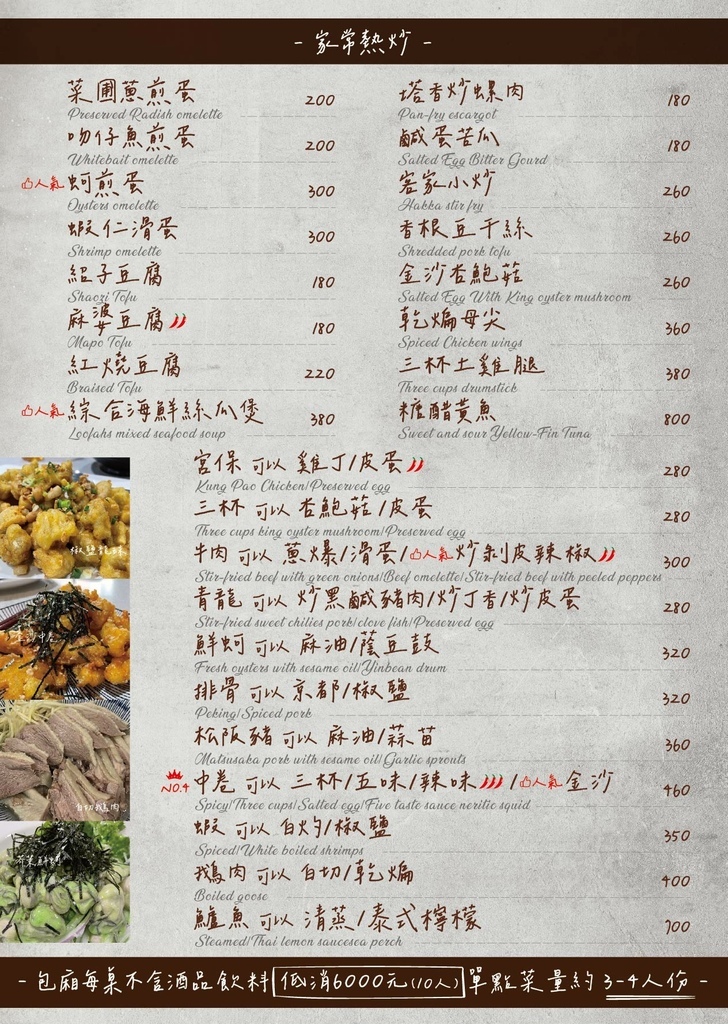 - 家常熱炒 -
菜圃蔥煎蛋 200
Preserved Radish omelette
吻仔魚煎蛋 200
Whitebait omelette
人氣 蚵煎蛋 300
Oysters omelette
蝦仁滑蛋 300
Shrimp omelette
紹子豆腐 180
Shaozi Tofu
麻婆豆腐 180
Mapo Tofu
紅燒豆腐 220
Braised Tofu
人氣 綜合海鮮絲瓜煲 380
Loofahs mixed seafood soup
塔香炒螺肉 180
Pan-fry escargot
鹹蛋苦瓜 180
Salted Egg Bitter Gourd
客家小炒 260
Hakka stir fry
香根豆干絲 260
Shredded pork tofu
金沙杏鮑菇 260
Salted Egg With King oyster mushroom
乾煸母尖 360
Spiced Chicken wings
三杯土雞腿 380
Three cups drumstick
糖醋黃魚 800
Sweet and sour Yellow-Fin Tuna
宮保 可以 雞丁/皮蛋 280
Kung Pao Chicken/Preserved egg
三杯 可以 杏鮑菇/皮蛋 280
Three cups king oyster mushroom/Preserved egg
牛肉 可以 蔥爆/滑蛋/人氣炒剝皮辣椒 300
Stir-fried beef with green onions/Beef omelette/Stir-fried beef with peeled peppers
青龍 可以 炒黑鹹豬肉/炒丁香/炒皮蛋 280
Stir-fried sweet chilies pork/clove fish/Preserved egg
鮮蚵 可以 麻油/蔭豆鼓 320
Fresh oysters with sesame oil/Yinbean drum
排骨 可以 京都/椒鹽 320
Peking/Spiced pork
松阪豬 可以 麻油/蒜苗 360
Matsusaka pork with sesame oil/Garlic sprouts
NO.1 中卷 可以 三杯/五味/辣味 /人氣金沙 460
Spicy/Three cups/Salted egg/Five taste sauce neritic squid
蝦 可以 白灼/椒鹽 350
Spiced/White boiled shrimps
鵝肉 可以 白切/乾煸 400
Boiled goose
鱸魚 可以 清蒸/泰式檸檬 700
Steamed/Thai lemon saucesea perch
椒鹽龍珠
白切鵝肉
芥末鮮蚵
- 包廂每桌不含酒品飲料 低消6000元(10人) 單點菜量約 3-4人份 -